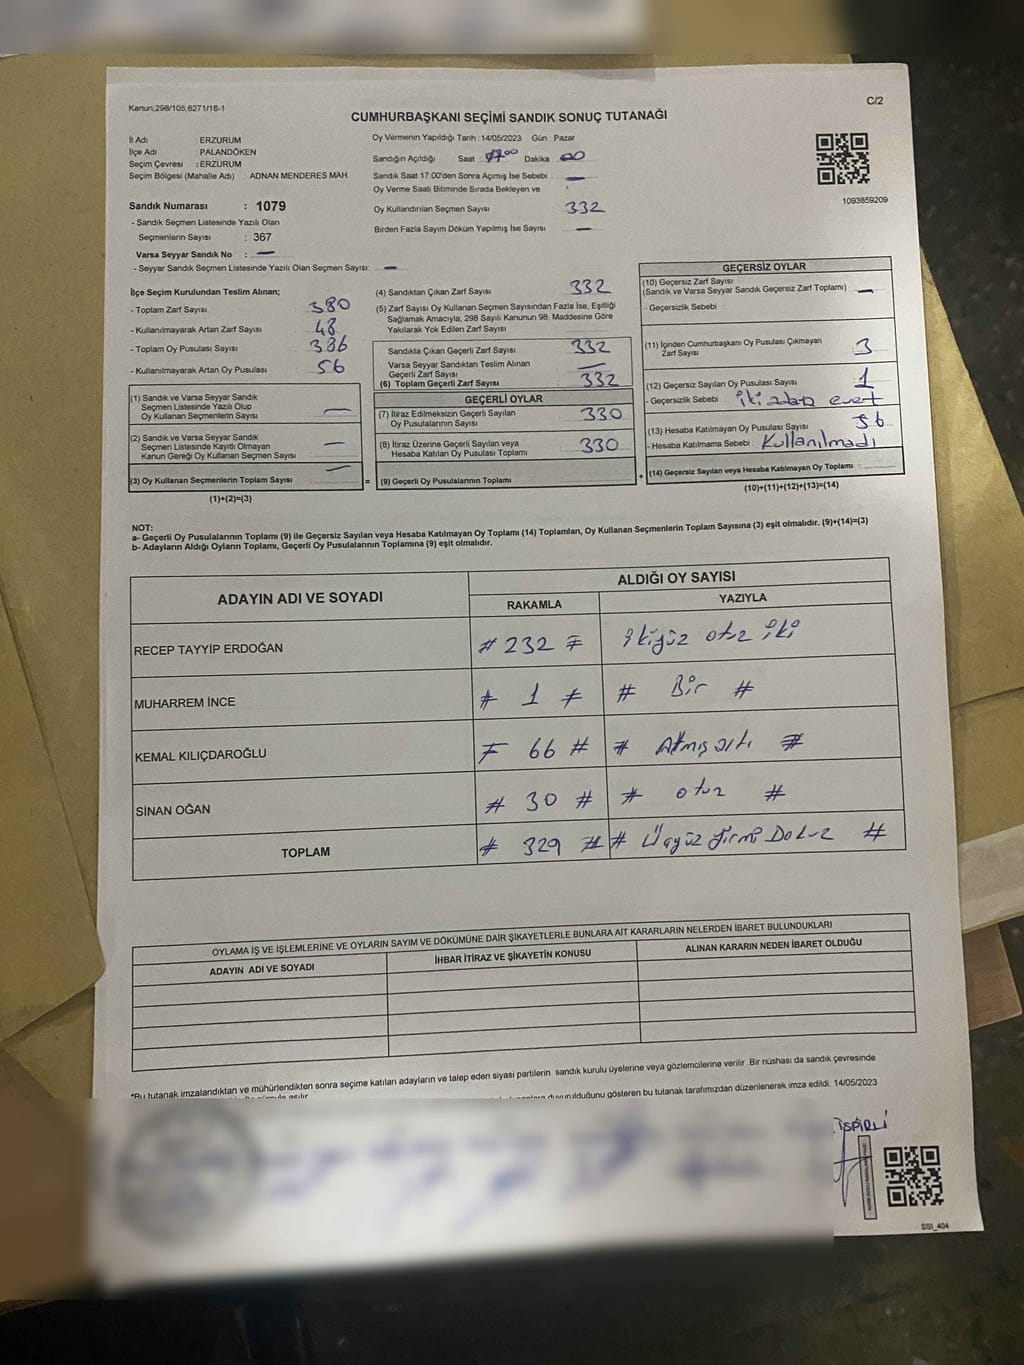 Kanun;298/105;6271/16-1
C/2
CUMHURBAŞKANI SEÇİMİ SANDIK SONUÇ TUTANAĞI
İl Adı ERZURUM
İlçe Adı PALANDÖKEN
Seçim Çevresi : ERZURUM
Seçim Bölgesi (Mahalle Adı) ADNAN MENDERES MAH.
Sandık Numarası : 1079
- Sandık Seçmen Listesinde Yazılı Olan
Seçmenlerin Sayısı : 367
Varsa Seyyar Sandık No : —
- Seyyar Sandık Seçmen Listesinde Yazılı Olan Seçmen Sayısı: —
Oy Vermenin Yapıldığı Tarih : 14/05/2023 Gün Pazar
Sandığın Açıldığı Saat Dakika 00
Sandık Saat 17:00'den Sonra Açımış İse Sebebi —
Oy Verme Saati Bitiminde Sırada Bekleyen ve
Oy Kullandırılan Seçmen Sayısı 332
Birden Fazla Sayım Döküm Yapılmış İse Sayısı —
1093859209
İlçe Seçim Kurulundan Teslim Alınan;
- Toplam Zarf Sayısı 380
- Kullanılmayarak Artan Zarf Sayısı 48
- Toplam Oy Pusulası Sayısı 386
- Kullanılmayarak Artan Oy Pusulası 56
(1) Sandık ve Varsa Seyyar Sandık
Seçmen Listesinde Yazılı Olup
Oy Kullanan Seçmenlerin Sayısı —
(2) Sandık ve Varsa Seyyar Sandık
Seçmen Listesinde Kayıtlı Olmayan
Kanun Gereği Oy Kullanan Seçmen Sayısı —
(3) Oy Kullanan Seçmenlerin Toplam Sayısı —
(1)+(2)=(3)
=
(4) Sandıktan Çıkan Zarf Sayısı 332
(5) Zarf Sayısı Oy Kullanan Seçmen Sayısından Fazla İse, Eşitliği
Sağlamak Amacıyla, 298 Sayılı Kanunun 98. Maddesine Göre
Yakılarak Yok Edilen Zarf Sayısı
Sandıkta Çıkan Geçerli Zarf Sayısı 332
Varsa Seyyar Sandıktan Teslim Alınan
Geçerli Zarf Sayısı —
(6) Toplam Geçerli Zarf Sayısı 332
GEÇERLİ OYLAR
(7) İtiraz Edilmeksizin Geçerli Sayılan
Oy Pusulalarının Sayısı 330
(8) İtiraz Üzerine Geçerli Sayılan veya
Hesaba Katılan Oy Pusulası Toplamı 330
(9) Geçerli Oy Pusulalarının Toplamı
+
GEÇERSİZ OYLAR
(10) Geçersiz Zarf Sayısı
(Sandık ve Varsa Seyyar Sandık Geçersiz Zarf Toplamı) : —
- Geçersizlik Sebebi :
(11) İçinden Cumhurbaşkanı Oy Pusulası Çıkmayan
Zarf Sayısı 3
(12) Geçersiz Sayılan Oy Pusulası Sayısı 1
- Geçersizlik Sebebi : iki adata evet
(13) Hesaba Katılmayan Oy Pusulası Sayısı 56
- Hesaba Katılmama Sebebi : Kullanılmadı
(14) Geçersiz Sayılan veya Hesaba Katılmayan Oy Toplamı :
(10)+(11)+(12)+(13)=(14)
NOT:
a- Geçerli Oy Pusulalarının Toplamı (9) ile Geçersiz Sayılan veya Hesaba Katılmayan Oy Toplamı (14) Toplamları, Oy Kullanan Seçmenlerin Toplam Sayısına (3) eşit olmalıdır. (9)+(14)=(3)
b- Adayların Aldığı Oyların Toplamı, Geçerli Oy Pusulalarının Toplamına (9) eşit olmalıdır.
ADAYIN ADI VE SOYADI
ALDIĞI OY SAYISI
RAKAMLA YAZIYLA
RECEP TAYYİP ERDOĞAN # 232 # ikiyüz otuz iki
MUHARREM İNCE # 1 # # Bir #
KEMAL KILIÇDAROĞLU # 66 # # Atmış altı #
SİNAN OĞAN # 30 # # otuz #
TOPLAM # 329 # # Üçyüz yirmi Dokuz #
OYLAMA İŞ VE İŞLEMLERİNE VE OYLARIN SAYIM VE DÖKÜMÜNE DAİR ŞİKAYETLERLE BUNLARA AİT KARARLARIN NELERDEN İBARET BULUNDUKLARI
ADAYIN ADI VE SOYADI İHBAR İTİRAZ VE ŞİKAYETİN KONUSU ALINAN KARARIN NEDEN İBARET OLDUĞU
*Bu tutanak imzalandıktan ve mühürlendikten sonra seçime katılan adayların ve talep eden siyasi partilerin sandık kurulu üyelerine veya gözlemcilerine verilir .Bir nüshası da sandık çevresinde
duyurulduğunu gösteren bu tutanak tarafımızdan düzenlenerek imza edildi. 14/05/2023
İSPİRLİ
SSI_404